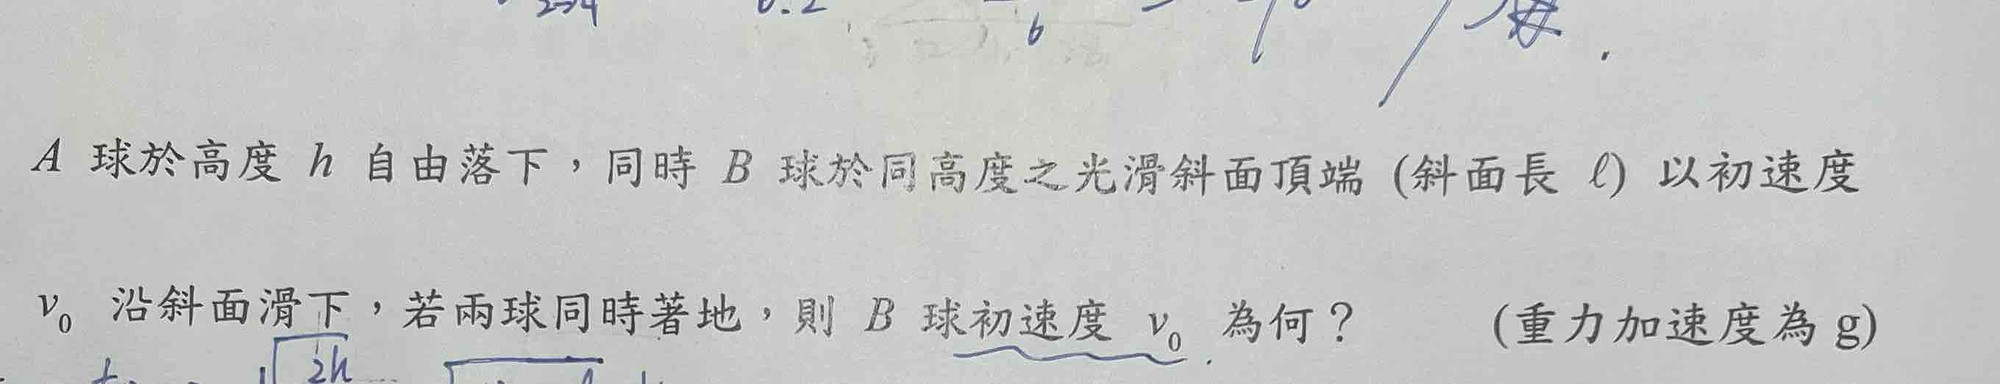 6
A 球於高度 h 自由落下,同時 B 球於同高度之光滑斜面頂端 (斜面長 ℓ) 以初速度
v₀ 沿斜面滑下,若兩球同時著地,則 B 球初速度 v₀ 為何? (重力加速度為 g)
2h